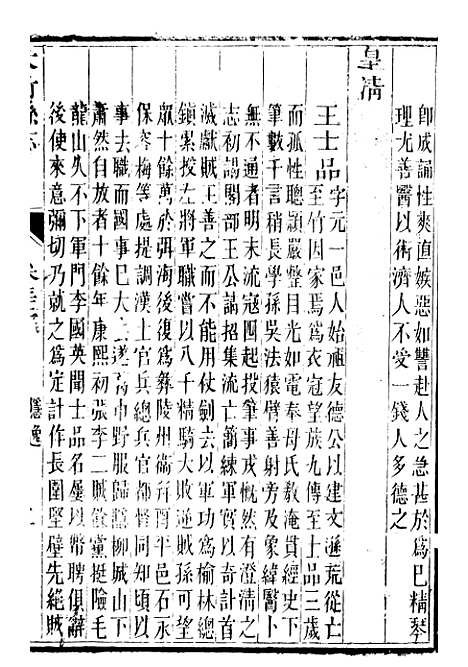 即成誦性爽直嫉惡如讐赴人之急甚於爲已精琴
理尤善醫以術濟人不愛一錢人多德之
皇清
王士品字元一邑人始祖友德公以建文遜荒從亡
至竹因家焉爲衣冠望族九傳至士品三歲
而孤性聰頴嚴整目光如電奉母氏教淹貫經史下
筆數千言稍長學孫吳法猿臂善射旁及象緯醫卜
無不通者明末流寇四起投筆事戎慨然有澄清之
志初謁閣部王公謀招集流亡簡練軍實以奇計首
滅獻賊王善之乃能用仗劍去以軍功爲榆林總
鎭累投左將軍職嘗以八千精騎大敗賊孫可望
衆十餘萬於弭海後復爲彝陵州衞
保寧梅等處提調漢土官兵總兵官都督同知頃以
事去職而國事已大
肅然自放者十餘年康熙初張李二賊餘黨挺險毛
龍山久不下軍門李國英聞士品名屢以幣聘俱辭
後使來意彌切乃就之爲定計作長圍堅壁先絕
隱逸